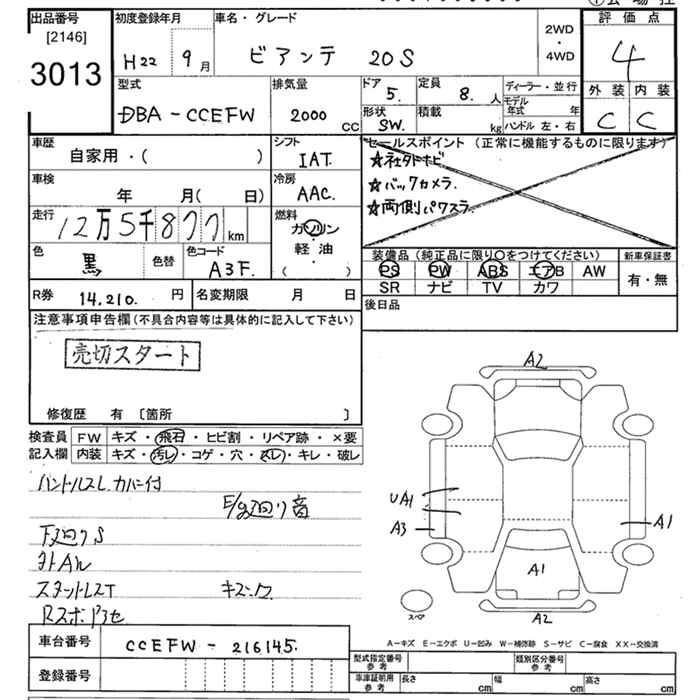 出品番号
[2146]
3013
初度登録年月
H22 9月
車名・グレード
ビアンテ 20S
2WD
・
4WD
評価点
4
型式
DBA-CCEFW
排気量
2000 CC
ドア
5.
定員
8. 人
形状
SW.
積載
kg
ディーラー・並行
モデル年式 年
ハンドル 左・右
外装 内装
C C
車歴
自家用・( )
シフト
IAT.
車検
年 月( 日)
冷房
AAC.
走行
12万5千877 km
燃料
ガソリン
軽油
( )
色
黒
色替
色コード
A3F.
R券 14.210. 円
名変期限 月 日
セールスポイント (正常に機能するものに限ります)
☆社外ナビ
☆バックカメラ.
☆両側パワスラ.
装備品 (純正品に限り〇をつけてください)
PS PW ABS エアB AW
SR ナビ TV カワ
新車保証書
有・無
後日品
注意事項申告欄(不具合内容等は具体的に記入して下さい)
売切スタート
修復歴 有 〔箇所 〕
検査員記入欄
FW キズ・飛石・ヒビ割・リペア跡・×要
内装 キズ・汚レ・コゲ・穴・スレ・キレ・破レ
ハンドルスレ カバー付
E/g廻り音
下廻りS
スタッドレスT
A2
UA1
A3
A1
A1
A2
スペア
A-キズ E-エクボ U-凹み W-補修跡 S-サビ C-腐食 XX-交換済
車台番号 CCEFW-216145.
登録番号
型式指定番号 参考
類別区分番号 参考
車庫証明用 参考
長さ cm
幅 cm
高さ cm